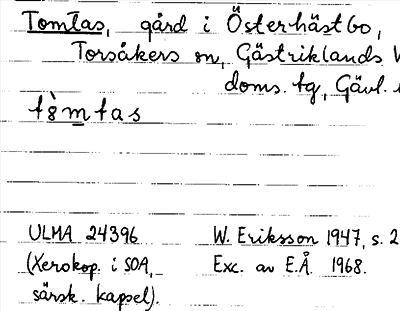 Tomtas, gård i Österhästbo,
Torsåkers sn, Gästriklands V
doms. tg, Gävl.
ULMA 24396 W. Eriksson 1947, s. 2
(Xerokop. i SOA, Exc. av E.Å. 1968.
särsk. kapsel).